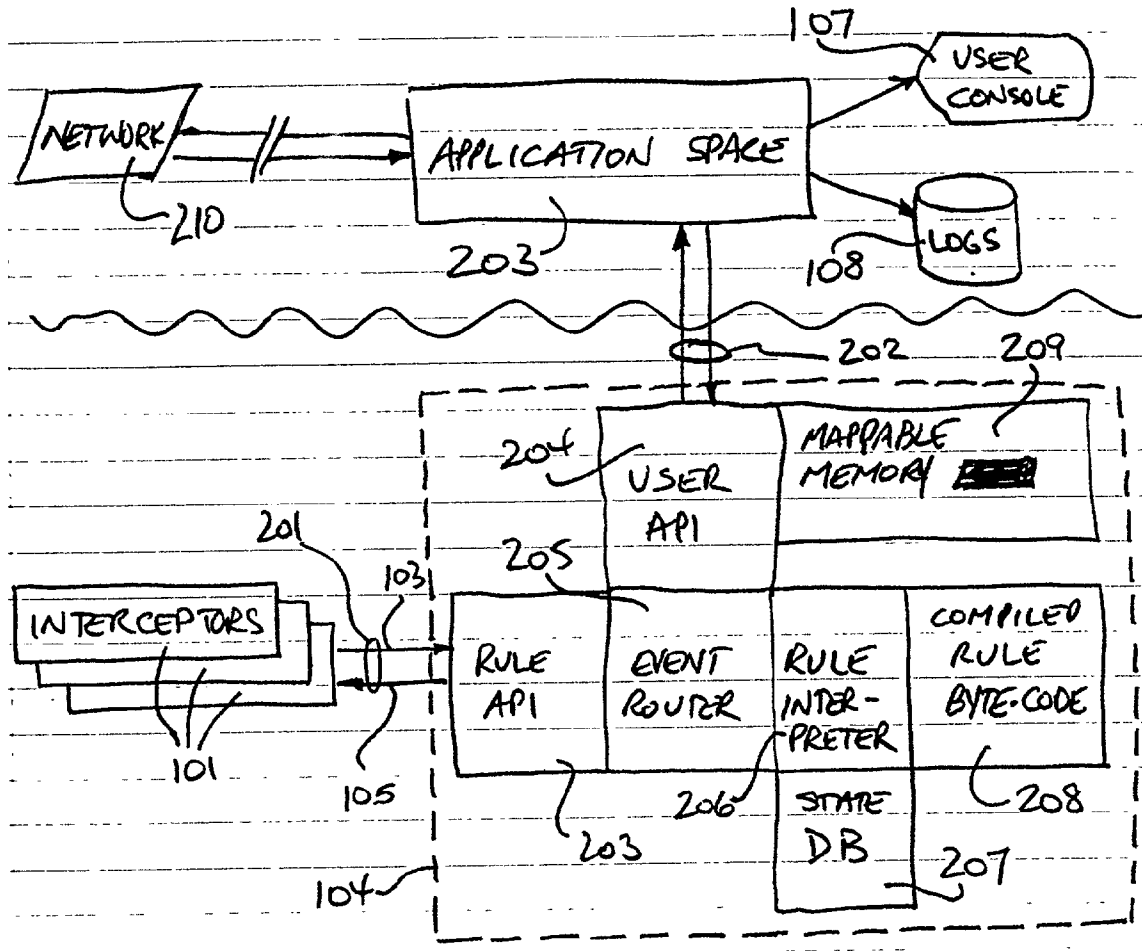 107
USER
CONSOLE
NETWORK
APPLICATION SPACE
210
203
108
LOGS
202
209
204
USER
API
MAPPABLE
MEMORY
201
103
205
INTERCEPTORS
RULE
API
EVENT
ROUTER
RULE
INTER-
PRETER
COMPILED
RULE
BYTE-CODE
101
105
203
206
STATE
DB
208
207
104